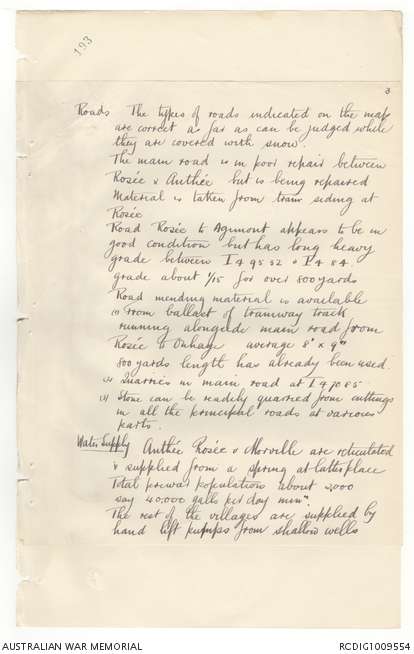 193
3
Roads The types of roads indicated on the map
are correct as far as can be judged while
they are covered with snow.
The main road is in poor repair between
Rosée & Anthée but is being repaired
Material is taken from tram siding at
Rosée
Road Rosée to Agimont appears to be in
good condition but has long heavy
grade between I 4 95 52 & I 4 84
grade about 1/15 for over 800 yards
Road mending material is available
(1) From ballast of tramway track
running alongside main road from
Rosée to Onhaye average 8' x 9"
800 yards length has already been used.
(2) Quarries in main road at I 9 70 85
(3) Stone can be readily quarried from cuttings
in all the principal roads at various
parts.
Water Supply Anthée Rosée & Morville are reticulated
& supplied from a spring at latter place
Total prewar population about 2,000
say 40.000 galls per day minm.
The rest of the villages are supplied by
hand lift pumps from shallow wells
AUSTRALIAN WAR MEMORIAL
RCDIG1009554